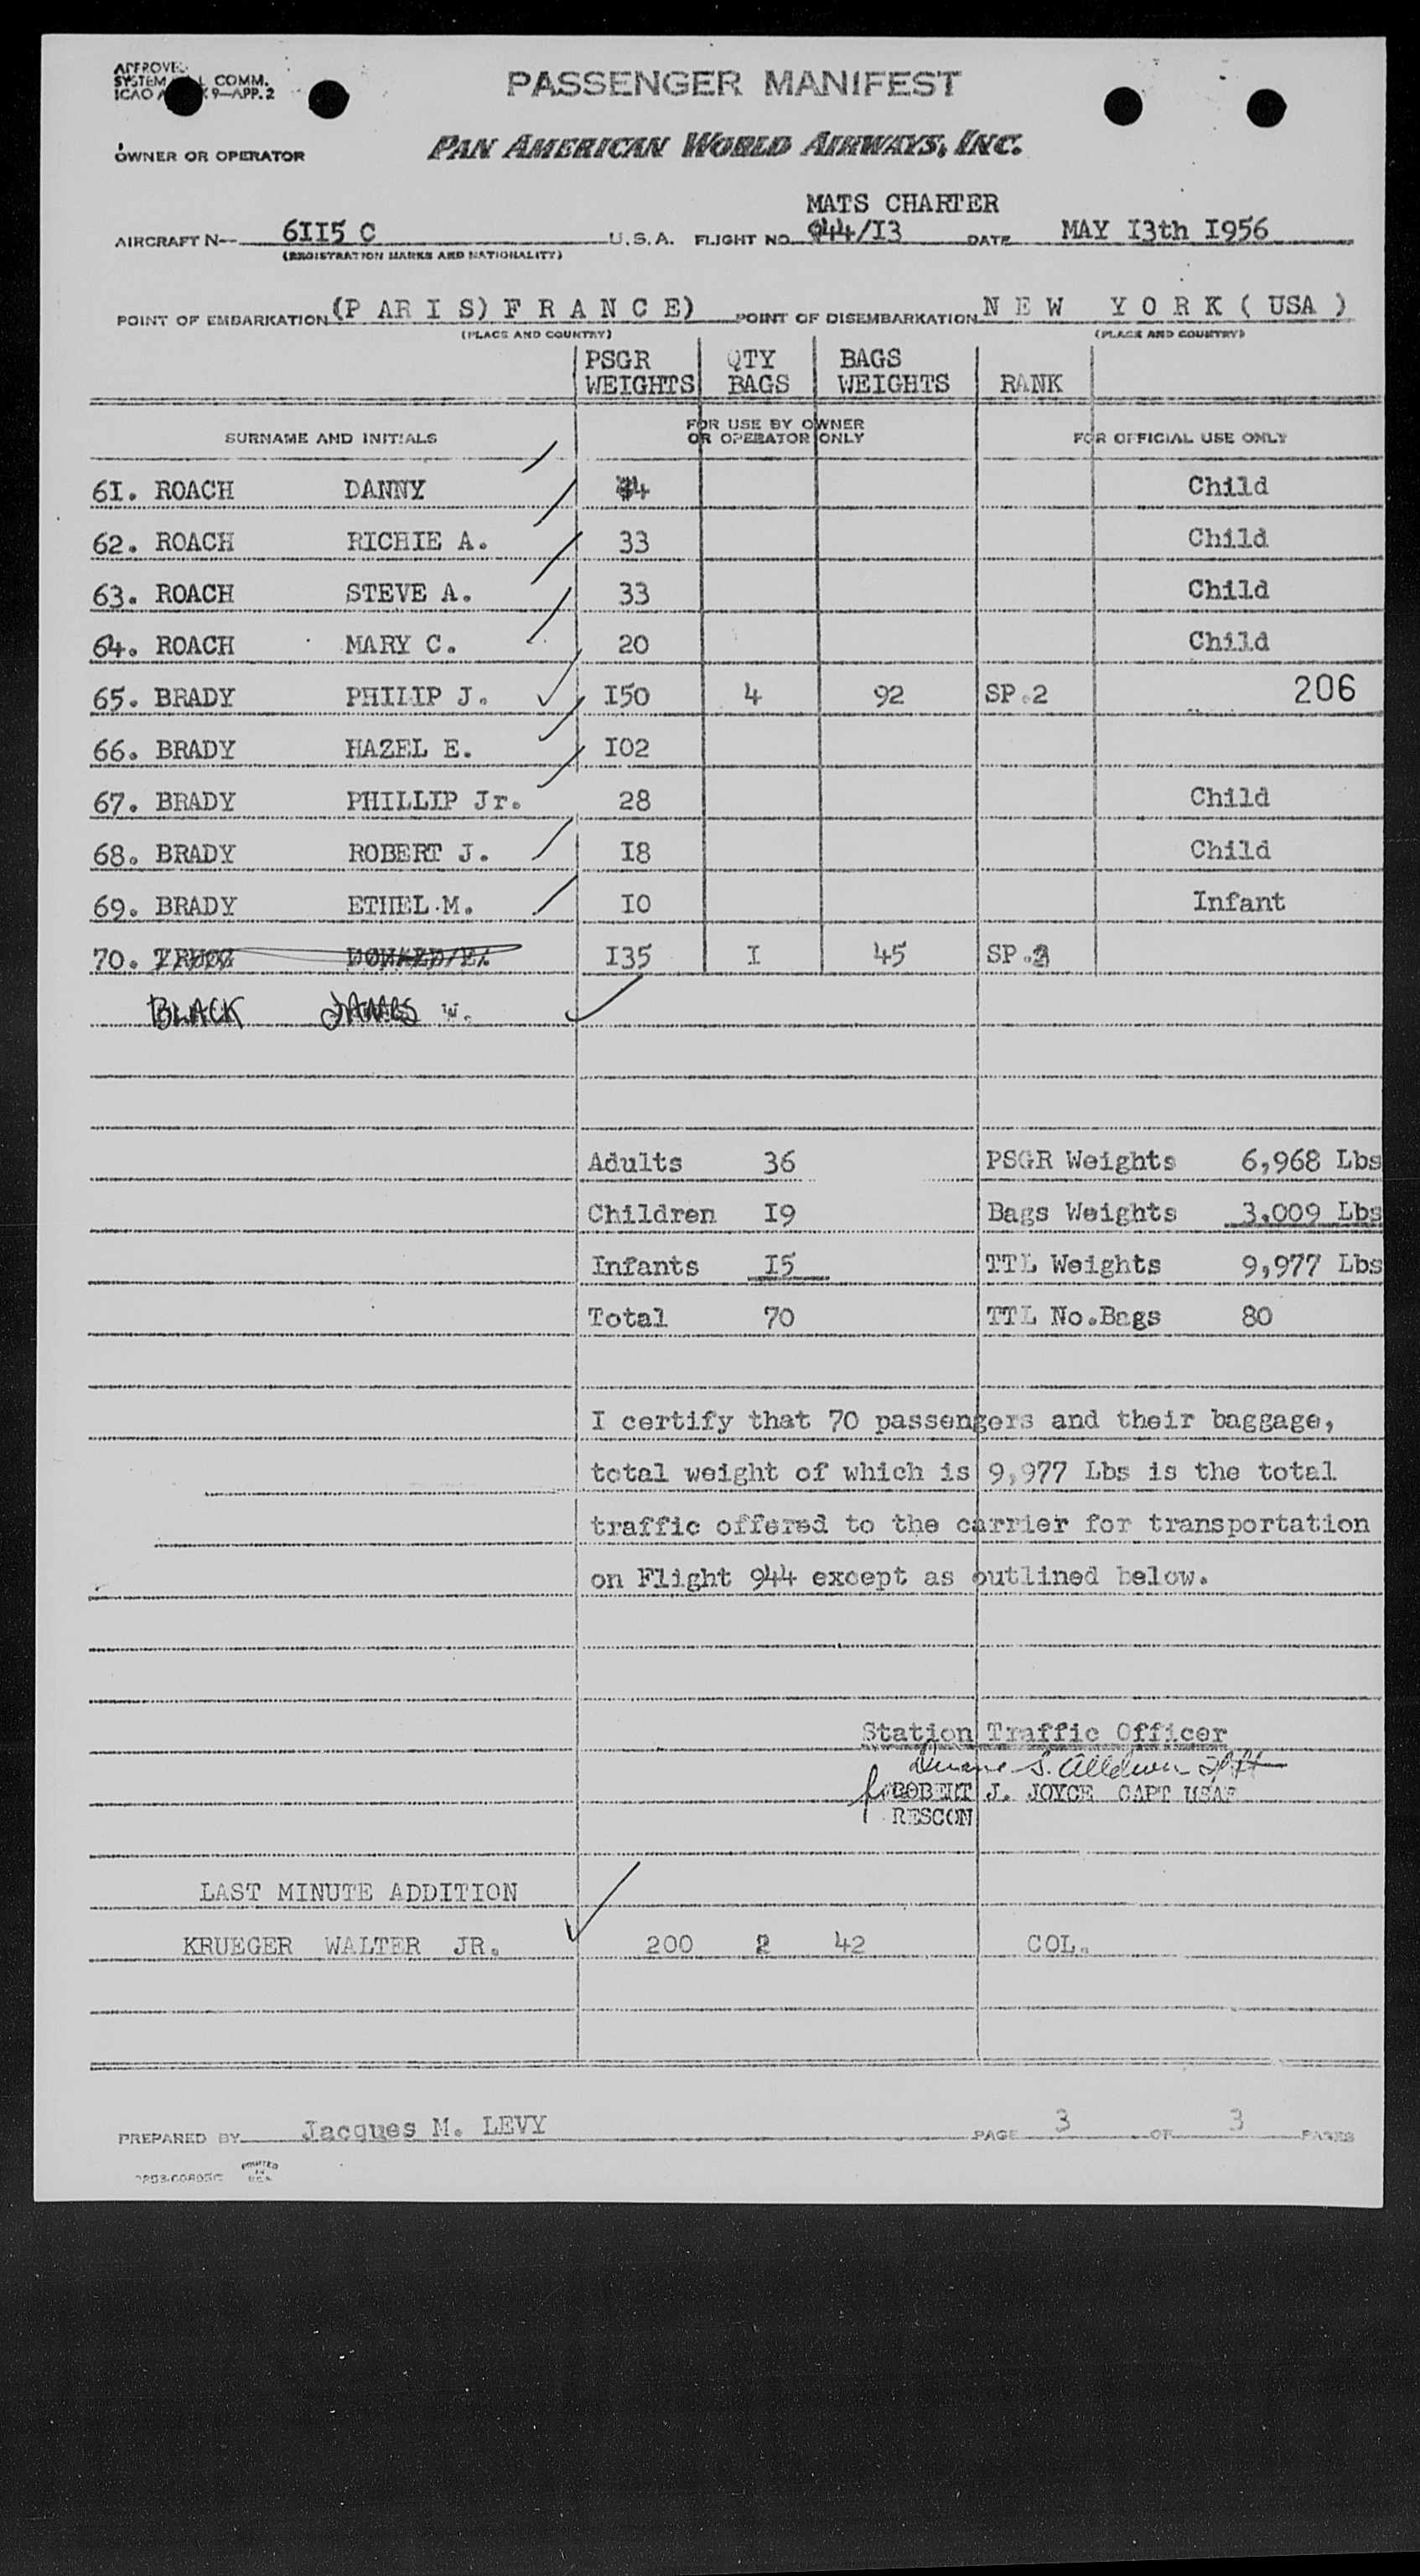 APPROVED
SYSTEM COMM.
ICAO 9—APP.2
PASSENGER MANIFEST
OWNER OR OPERATOR PAN AMERICAN WORLD AIRWAYS, INC.
MATS CHARTER
AIRCRAFT N-- 6II5 C U.S.A. FLIGHT NO. 944/I3 DATE MAY I3th I956
(REGISTRATION MARKS AND NATIONALITY)
POINT OF EMBARKATION (P AR I S) F R A N C E) POINT OF DISEMBARKATION N E W Y O R K ( USA )
(PLACE AND COUNTRY) (PLACE AND COUNTRY)
PSGR QTY BAGS
WEIGHTS BAGS WEIGHTS RANK
SURNAME AND INITIALS FOR USE BY OWNER OR OPERATOR ONLY FOR OFFICIAL USE ONLY
6I. ROACH DANNY 44 Child
62. ROACH RICHIE A. 33 Child
63. ROACH STEVE A. 33 Child
64. ROACH MARY C. 20 Child
65. BRADY PHILIP J. I50 4 92 SP.2 206
66. BRADY HAZEL E. I02
67. BRADY PHILLIP Jr. 28 Child
68. BRADY ROBERT J. I8 Child
69. BRADY ETHEL M. I0 Infant
70. DONALD E. I35 I 45 SP.3
BLACK JAMES W.
Adults 36 PSGR Weights 6,968 Lbs
Children I9 Bags Weights 3.009 Lbs
Infants I5 TTL Weights 9,977 Lbs
Total 70 TTL No.Bags 80
I certify that 70 passengers and their baggage,
total weight of which is 9,977 Lbs is the total
traffic offered to the carrier for transportation
on Flight 944 except as outlined below.
Station Traffic Officer
Duane S.
for ROBERT J. JOYCE CAPT USAF
RESCON
LAST MINUTE ADDITION
KRUEGER WALTER JR. 200 2 42 COL.
PREPARED BY Jacques M. LEVY PAGE 3 OF 3 PAGES
PRINTED
IN
U.S.A.